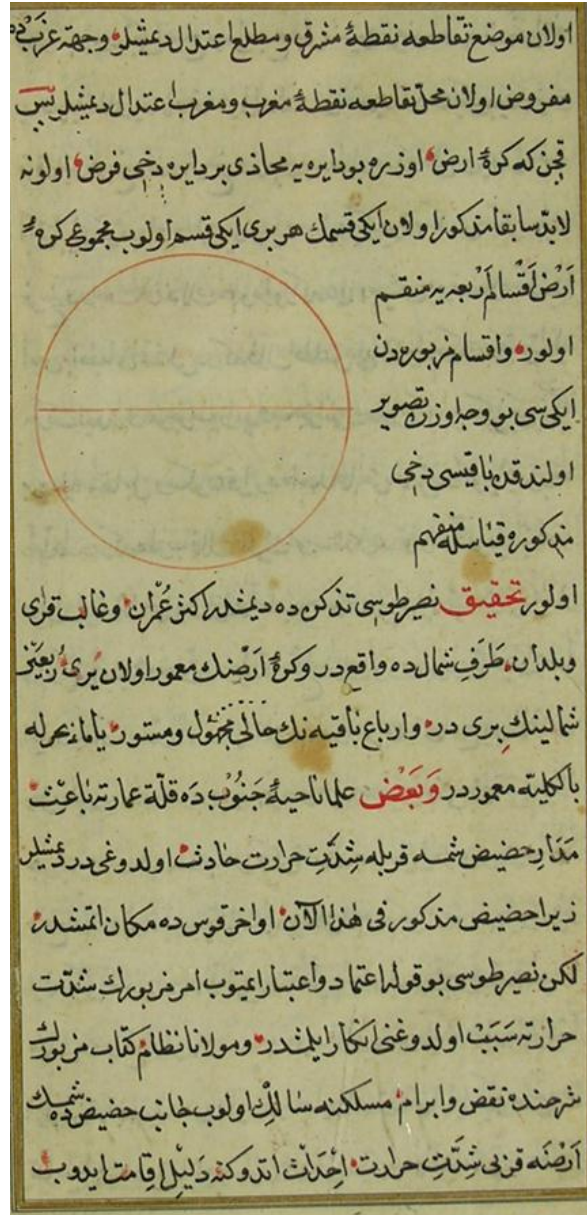 اولان موضع تقاطعه نقطهٔ مشرق ومطلع اعتدال دیمشلر وجهة غربده
مفروض اولان محلّ تقاطعه نقطهٔ مغرب ومغرب اعتدال دیمشلر پس
قچن که کرهٔ ارض اوزره بو دایره یه محاذی بر دایره دخی فرض اولونه
لابدّ سابقا مذکور اولان ایکی قسمك هر بری ایکی قسم اولوب مجموع کرهٔ
اَرْض اَقْسام اَرْبعه یه منقسم
اولور واقسام مزبوره دن
ایکی سی بو وجه اوزره تصویر
اولندقدن باقیسی دخی
مذکوره قیاسله منفهم
اولور تحقیق نصیر طوسی تذکره ده دیمشدر اکثر عُمْران وغالب قرای
وبلدان طَرَفِ شمال ده واقع در وکرهٔ اَرْضنك معمور اولان یری رُبعین
شمالینك بری در وارباع باقیه نك حالی مجهول ومستور یا ماء بحر له
بالکلیه معمور در وَبَعْض علما ناحیهٔ جَنُوْب دَه قلّة عمارته باعِث
مَدَارِ حضیض شمسه قربله شِدّتِ حرارت حادث اولدوغی در دیمشلر
زیرا حضیض مذکور فی هٰذا الآن اواخر قوس ده مکان اتمشدر
لکن نصیر طوسی بو قوله اعتماد واعتبار ایتمیوب امر مزبورك شدّت
حرارته سَبَبْ اولدوغنی انکار ایلمشدر ومولانا نظام کتاب مزبورك
شرحنده نقض وابرام مسلکنه سالك اولوب جانب حضیض ده شمسك
اَرْضَه قربی شِدّتِ حرارت اِحْدَاث اتدوکنه دَلیل اِقامت ایدوب